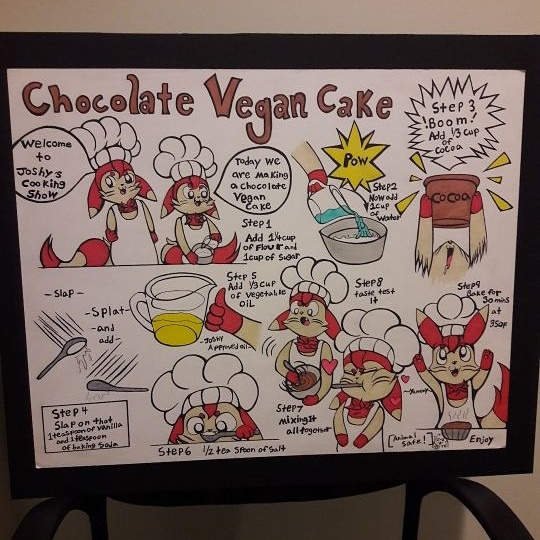 Chocolate Vegan Cake
Welcome
to
Joshy's
Cooking
Show
Today we
are making
a chocolate
Vegan
Cake
Step 1
Add 1¼ cup
of Flour and
1 cup of Sugar
Pow
Step 2
Now add
1 cup
of Water
Step 3
Boom!
Add ⅓ cup
of
cocoa
COCOA
- Slap -
- Splat -
- and
add -
Step 4
Slap on that
1 teaspoon of vanilla
and 1 teaspoon
of baking soda
Step 5
Add ⅓ cup
of vegetable
oil
- Joshy
Approved oil -
Step 6 ½ tea spoon of salt
Step 7
Mixing it
all together
Step 8
taste test
it
~Yummy~
Step 9
Bake for
30 mins
at
350F
[Animal
Safe!]
Enjoy